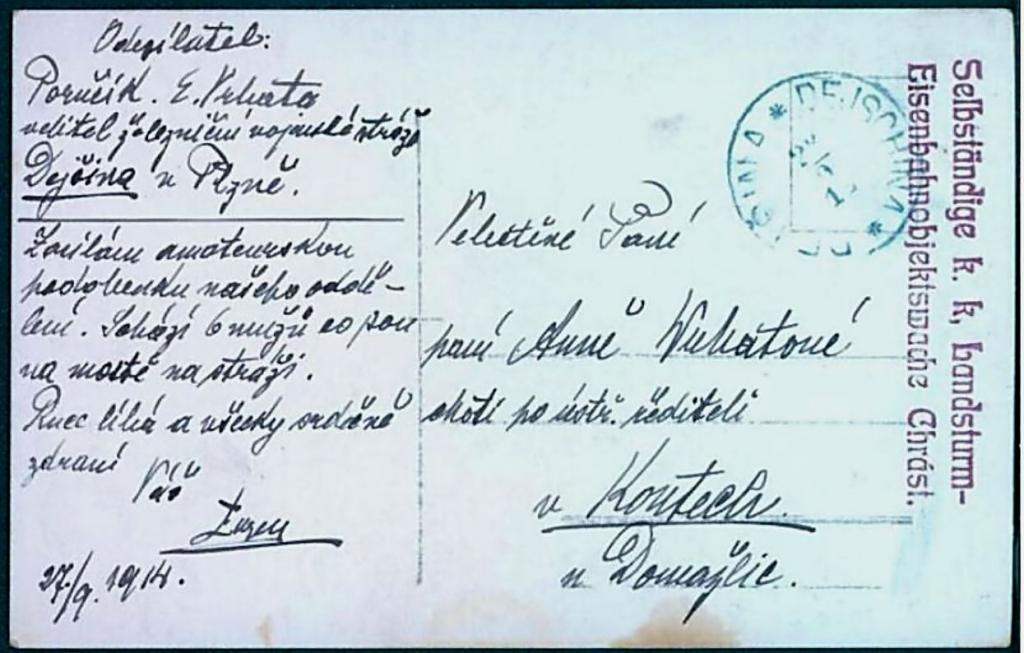 Odesílatel:
Poručík. E. Vrhata
velitel železniční vojenské stráže
Dejšina u Plzně.
Zasílám amateurskou
podobenku našeho oddě-
lení. Schází 6 mužů co jsou
na mostě na stráži.
Ruce líbá a všecky srdečně
zdraví
Váš
Evžen
27./9. 1914.
Velectěné Paní
paní Anně Wrhatové
choti po ústř. řediteli
v Koutech.
u Domažlic.
* DEJSCHINA *
DEJŠINA
Selbständige k. k. Landsturm-
Eisenbahnobjektswache Chrást.